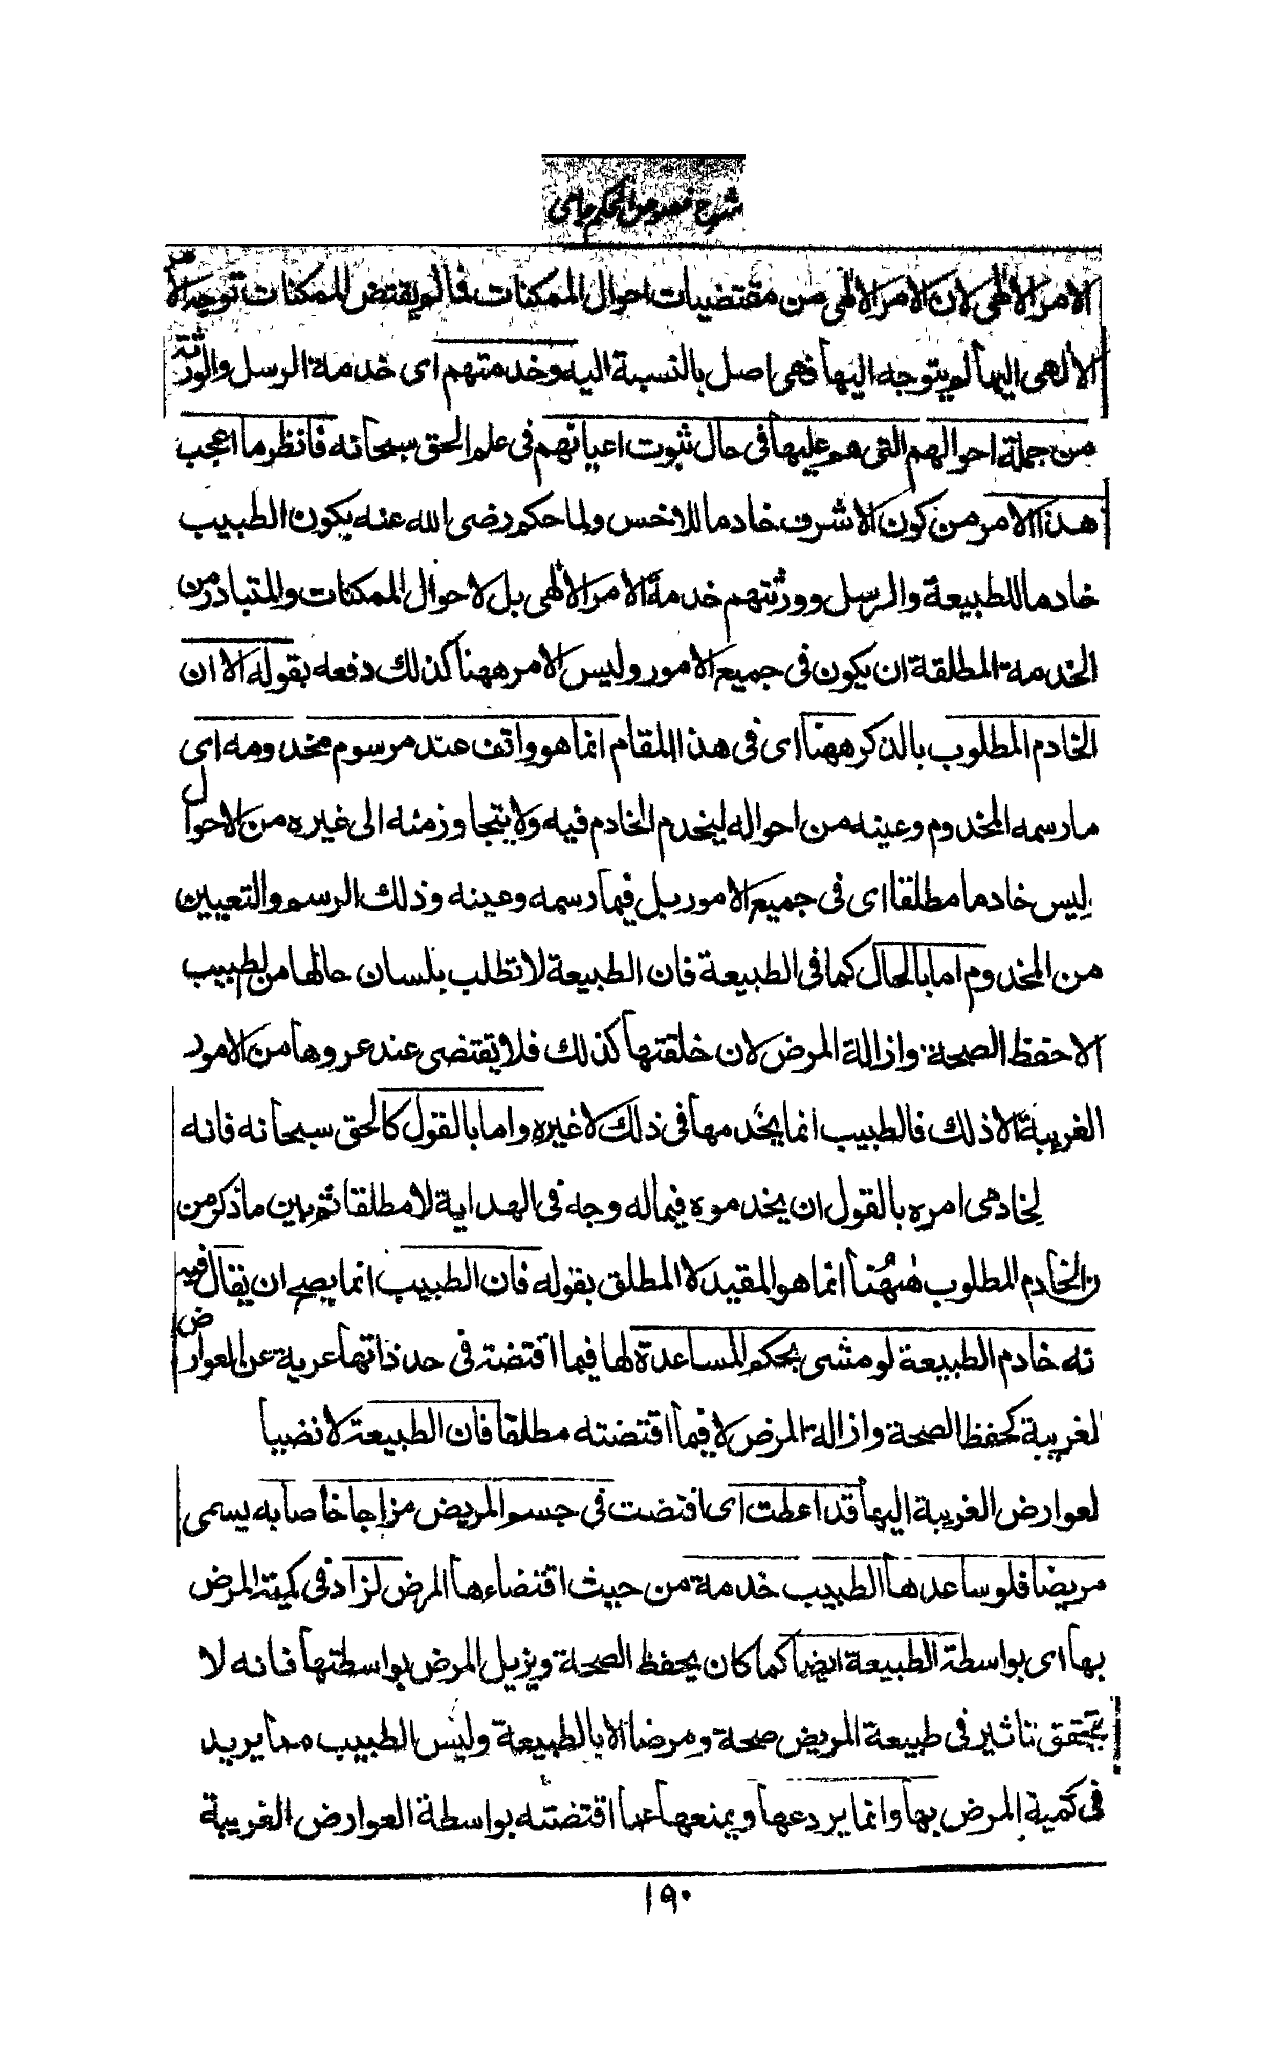 شرح فصوص الحكم جامى
الامر الالهى لان الامر الالهى من مقتضيات احوال الممكنات فالم يقتض للمكنات توجه الامر
الالهى اليها لم يتوجه اليها فهى اصل بالنسبة اليه وخدمتهم اى خدمة الرسل والورثة
من جملة احوالهم التى هم عليها فى حال ثبوت اعيانهم فى علم الحق سبحانه فانظر ما اعجب
هذا الامر من كون الاشرف خادما للاخس ولما حكم رضى الله عنه بكون الطبيب
خادما للطبيعة والرسل وورثتهم خدمة الامر الالهى بل لاحوال الممكنات والمتبادر من
الخدمة المطلقة ان يكون فى جميع الامور وليس الامر ههنا كذلك دفعه بقوله الا ان
الخادم المطلوب بالذكر ههنا اى فى هذا المقام انما هو واقف عند مرسوم مخدومه اى
ما رسمه المخدوم وعينه من احواله ليخدم الخادم فيه ولا يتجاوز منه الى غيره من الاحوال
ليس خادما مطلقا اى فى جميع الامور بل فيما رسمه وعينه وذلك الرسم والتعيين
من المخدوم اما بالحال كما فى الطبيعة فان الطبيعة لا تطلب بلسان حالها من لطبيب
الا حفظ الصحة وازالة المرض لان خلقتها كذلك فلا يقتضى عند عروها من الامور
الغريبة الا ذلك فالطبيب انما يخدمها فى ذلك لا غيره واما بالقول كالحق سبحانه فانه
لخادمى امره بالقول ان يخدموه فيما له وجه فى الهداية لا مطلقا ثم بين ما ذكر من
ن الخادم المطلوب ههنا انما هو المقيد لا المطلق بقوله فان الطبيب انما يصح ان يقال فيه
نه خادم الطبيعة لو مشى بحكم المساعدة لها فيما اقتضته فى حد ذاتها عرية عن العوارض
لغريبة كحفظ الصحة وازالة المرض لا فيما اقتضته مطلقا فان الطبيعة لانضياٍ
لعوارض الغريبة اليها قد اعطت اى اقتضت فى جسم المريض مزاجا خاصا به يسمى
مريضا فلو ساعدها الطبيب خدمة من حيث اقتضاءها المرض لزاد فى كمية المرض
بها اى بواسطة الطبيعة ايضا كما كان يحفظ الصحة ويزيل المرض بواسطتها فانه لا
يتحقق تاثير فى طبيعة المريض صحة ومرضا الا بالطبيعة وليس الطبيب مما يريد
فى كمية المرض بها وانما يردعها ويمنعها عما اقتضته بواسطة العوارض الغريبة
١٩٠